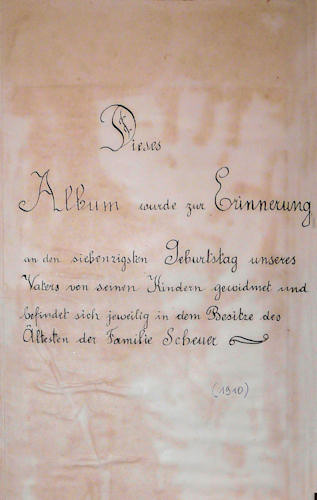 Dieses
Album wurde zur Erinnerung
an den siebenzigsten Geburtstag unseres
Vaters von seinen Kindern gewidmet und
befindet sich jeweilig in dem Besitze des
Ältesten der Familie Scheuer
(1910)